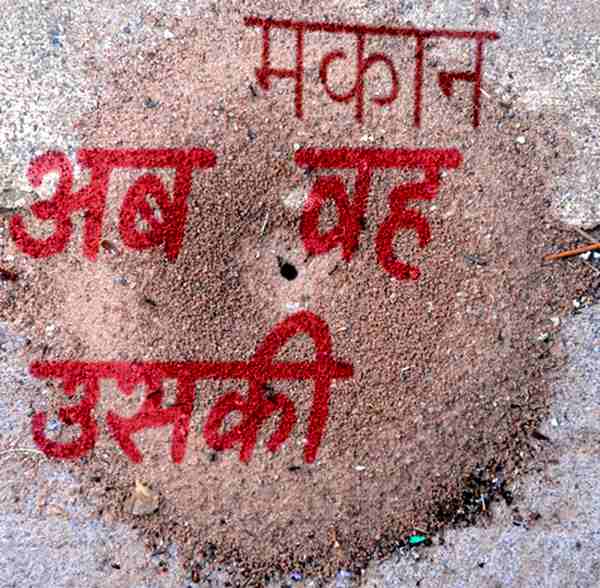 मकान
अब वह
उसकी